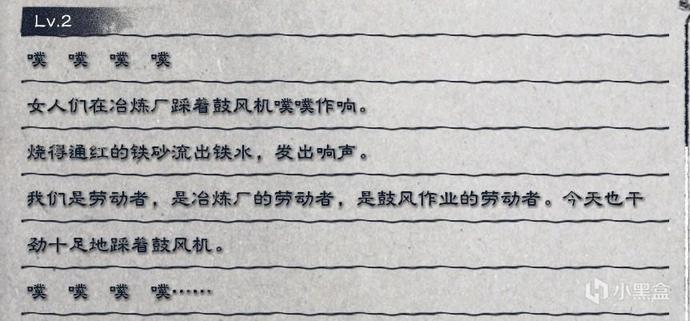 Lv.2
噗 噗 噗 噗
女人们在冶炼厂踩着鼓风机噗噗作响。
烧得通红的铁砂流出铁水，发出响声。
我们是劳动者，是冶炼厂的劳动者，是鼓风作业的劳动者。今天也干
劲十足地踩着鼓风机。
噗 噗 噗 噗……
小黑盒